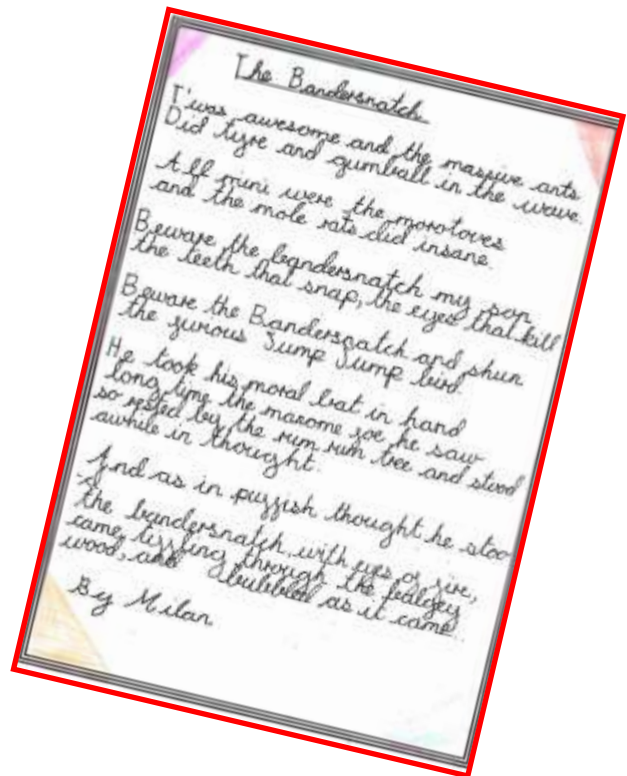 The Bandersnatch
T'was awesome and the massive ants
Did tyre and gumball in the wave.
All mini were the morotoves
and the mole rats did insane.
Beware the bandersnatch my son
the teeth that snap, the eyes that kill
Beware the Bandersnatch and shun
the furious Jump Jump bird.
He took his moral bat in hand
long time the maxome foe he saw
so rested by the rum rum tree and stood
awhile in thought.
And as in puffish thought he stoo
the bandersnatch, with eyes of fire,
came, tizzling through the palgey
wood, and bubbled as it came.
By Milan